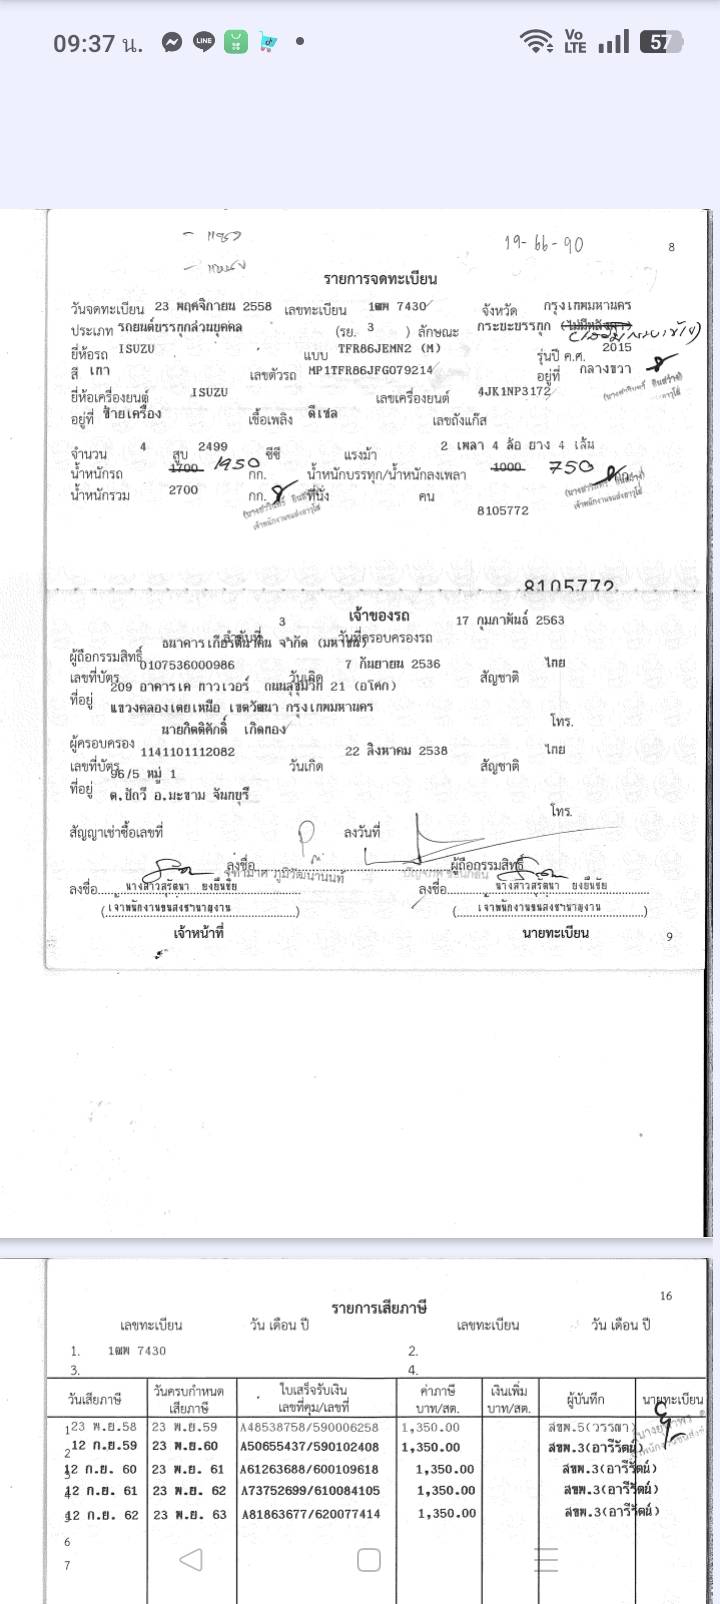 09:37 น.
LINE
Vo LTE
57
19-66-90
8
รายการจดทะเบียน
วันจดทะเบียน 23 พฤศจิกายน 2558 เลขทะเบียน 1ฒพ 7430 จังหวัด กรุงเทพมหานคร
ประเภท รถยนต์บรรทุกส่วนบุคคล (รย. 3 ) ลักษณะ กระบะบรรทุก (ไม่มีหลังคา)
ยี่ห้อรถ ISUZU แบบ TFR86JEMN2 (M) รุ่นปี ค.ศ. 2015
สี เทา เลขตัวรถ MP1TFR86JFG079214 อยู่ที่ กลางขวา
ยี่ห้อเครื่องยนต์ ISUZU เลขเครื่องยนต์ 4JK1NP3172
อยู่ที่ ซ้ายเครื่อง เชื้อเพลิง ดีเซล เลขถังแก๊ส
จำนวน 4 สูบ 2499 ซีซี แรงม้า 2 เพลา 4 ล้อ ยาง 4 เส้น
น้ำหนักรถ 1700 1950 กก. น้ำหนักบรรทุก/น้ำหนักลงเพลา 1000 750 กก.
น้ำหนักรวม 2700 กก. ที่นั่ง คน
8105772
8105772
เจ้าของรถ
ลำดับที่ 3 วันที่ครอบครองรถ 17 กุมภาพันธ์ 2563
ผู้ถือกรรมสิทธิ์ ธนาคารเกียรตินาคิน จำกัด (มหาชน)
เลขที่บัตร 0107536000986 วันเกิด 7 กันยายน 2536 สัญชาติ ไทย
ที่อยู่ 209 อาคารเค ทาวเวอร์ ถนนสุขุมวิท 21 (อโศก)
แขวงคลองเตยเหนือ เขตวัฒนา กรุงเทพมหานคร
โทร.
ผู้ครอบครอง นายกิตติศักดิ์ เกิดทอง
เลขที่บัตร 1141101112082 วันเกิด 22 สิงหาคม 2538 สัญชาติ ไทย
ที่อยู่ 96/5 หมู่ 1
ต.ปัถวี อ.มะขาม จันทบุรี
โทร.
สัญญาเช่าซื้อเลขที่ ลงวันที่
ลงชื่อ ผู้ถือกรรมสิทธิ์
ลงชื่อ นางสาวสุรัตนา ยงยืนชัย ลงชื่อ นางสาวสุรัตนา ยงยืนชัย
(เจ้าพนักงานขนส่งชำนาญงาน) (เจ้าพนักงานขนส่งชำนาญงาน)
เจ้าหน้าที่ นายทะเบียน 9
16
รายการเสียภาษี
เลขทะเบียน วัน เดือน ปี เลขทะเบียน วัน เดือน ปี
1. 1ฒพ 7430 2.
3. 4.
วันเสียภาษี วันครบกำหนดเสียภาษี ใบเสร็จรับเงิน เลขที่คุม/เลขที่ ค่าภาษี บาท/สต. เงินเพิ่ม บาท/สต. ผู้บันทึก นายทะเบียน
1 23 พ.ย.58 23 พ.ย.59 A48538758/590006258 1,350.00 สขพ.5(วรรณา)
2 12 ก.ย.59 23 พ.ย.60 A50655437/590102408 1,350.00 สขพ.3(อารีรัตน์)
3 12 ก.ย. 60 23 พ.ย. 61 A61263688/600109618 1,350.00 สขพ.3(อารีรัตน์)
4 12 ก.ย. 61 23 พ.ย. 62 A73752699/610084105 1,350.00 สขพ.3(อารีรัตน์)
5 12 ก.ย. 62 23 พ.ย. 63 A81863677/620077414 1,350.00 สขพ.3(อารีรัตน์)
6
7